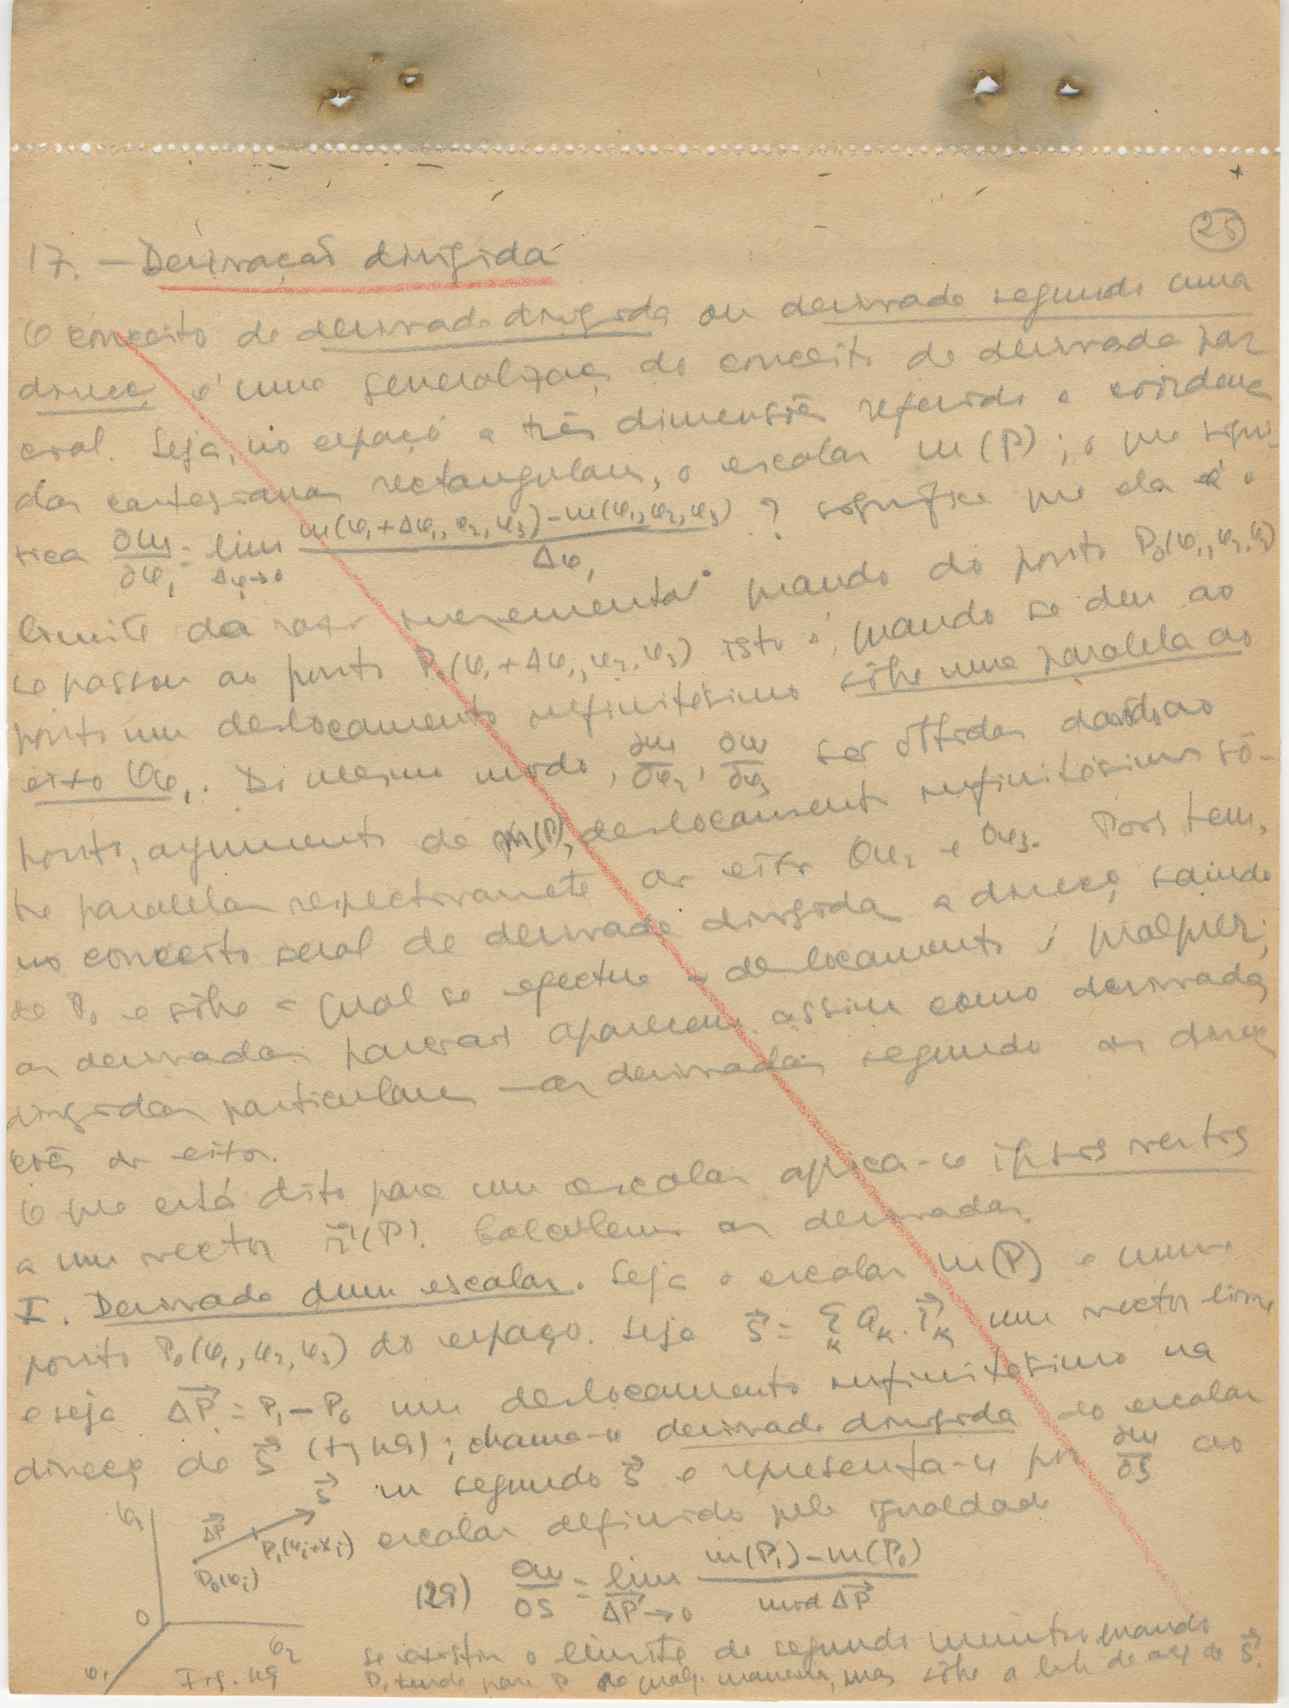 25
17. — Derivação dirigida
O conceito de derivada dirigida ou derivada segundo uma
direcç é uma generalizaç do conceito de derivada par
cial. Seja, no espaço a três dimensões referido a coordena
das cartesianas rectangulares, o escalar m(P); o que signi-
fica ∂m/∂φ₁ = lim Δφ₁→0 m(φ₁+Δφ₁, φ₂, φ₃) − m(φ₁, φ₂, φ₃) / Δφ₁ ? significa que ela é o
limite da razão incremental quando do ponto P₀(φ₁, φ₂, φ₃)
se passou ao ponto P₁(φ₁+Δφ₁, φ₂, φ₃) isto é, quando se deu ao
ponto um deslocamento infinitésimo sôbre uma paralela ao
eixo Oφ₁. Do mesmo modo, ∂m/∂φ₂, ∂m/∂φ₃ ser obtidas dando ao
ponto, argumento de m(P), deslocamentos infinitésimos sô-
bre paralelas respectivamente aos eixos Oφ₂ e Oφ₃. Pois bem,
no conceito geral de derivada dirigida a direcç saindo
de P₀ e sôbre a qual se efectua o deslocamento é qualquer;
as derivadas parciais aparecem assim como derivadas
dirigidas particulares — as derivadas segundo as direc
ções dos eixos.
O que está dito para um escalar aplica-se ipsis verbis
a um vector r⃗(P). Calculemos as derivadas.
I. Derivada dum escalar. Seja o escalar m(P) e num
ponto P₀(φ₁, φ₂, φ₃) do espaço. Seja s⃗ = Σₖ aₖ.i⃗ₖ um vector livre
e seja ΔP⃗ = P₁ − P₀ um deslocamento infinitésimo na
direcç de s⃗ (fig 49); chama-se derivada dirigida do escalar
m segundo s⃗ e representa-se por ∂m/∂s ao
escalar definido pela igualdade
(29) ∂m/∂s = lim ΔP⃗→0 m(P₁) − m(P₀) / mod ΔP⃗
se existir o limite do segundo membro quando
P₁ tende para P₀ de qualq. maneira, mas sôbre a linha de acç de s⃗.
φ₃
ΔP⃗
s⃗
P₁(φᵢ+xᵢ)
P₀(φᵢ)
O
φ₂
φ₁
Fig. 49